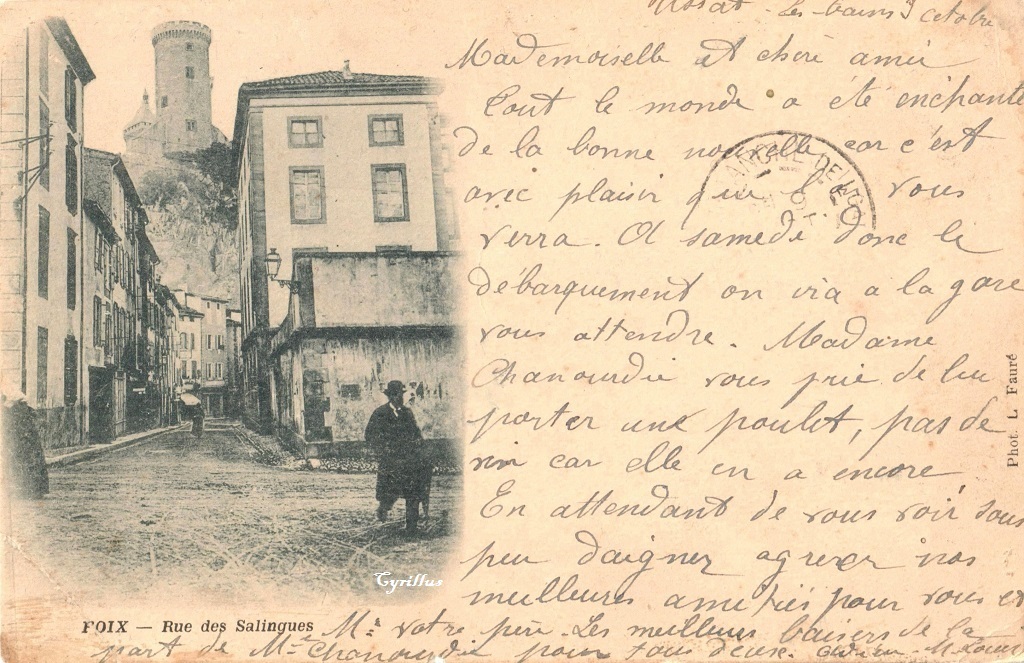 Les bains 3 octobre
Mademoiselle et chère amie
Tout le monde a été enchanté
de la bonne nouvelle car c'est
avec plaisir que vous
verra. A samedi donc le
débarquement on ira a la gare
vous attendre. Madame
Chanourdie vous prie de lui
porter une poulet, pas de
vin car elle en a encore
En attendant de vous voir sous
peu daignez agréer nos
meilleures amitiés pour vous et
Mr votre père. Les meilleurs baisers de la
part de Mme Chanourdie pour tous deux.
FOIX — Rue des Salingues
Phot. L. Fauré
Cyrillus